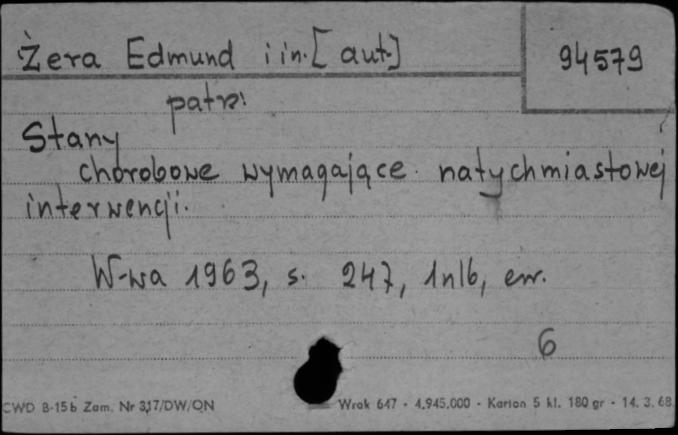 Żera Edmund i in. [aut.]
94579
patrz:
Stany
chorobowe wymagające natychmiastowej
interwencji.
W-wa 1963, s. 247, 1nlb, err.
6
CWD B-15b Zam. Nr 317/DW/ON
Wrok 647 - 4.945.000 - Karton 5 kl. 180 gr - 14. 3. 68